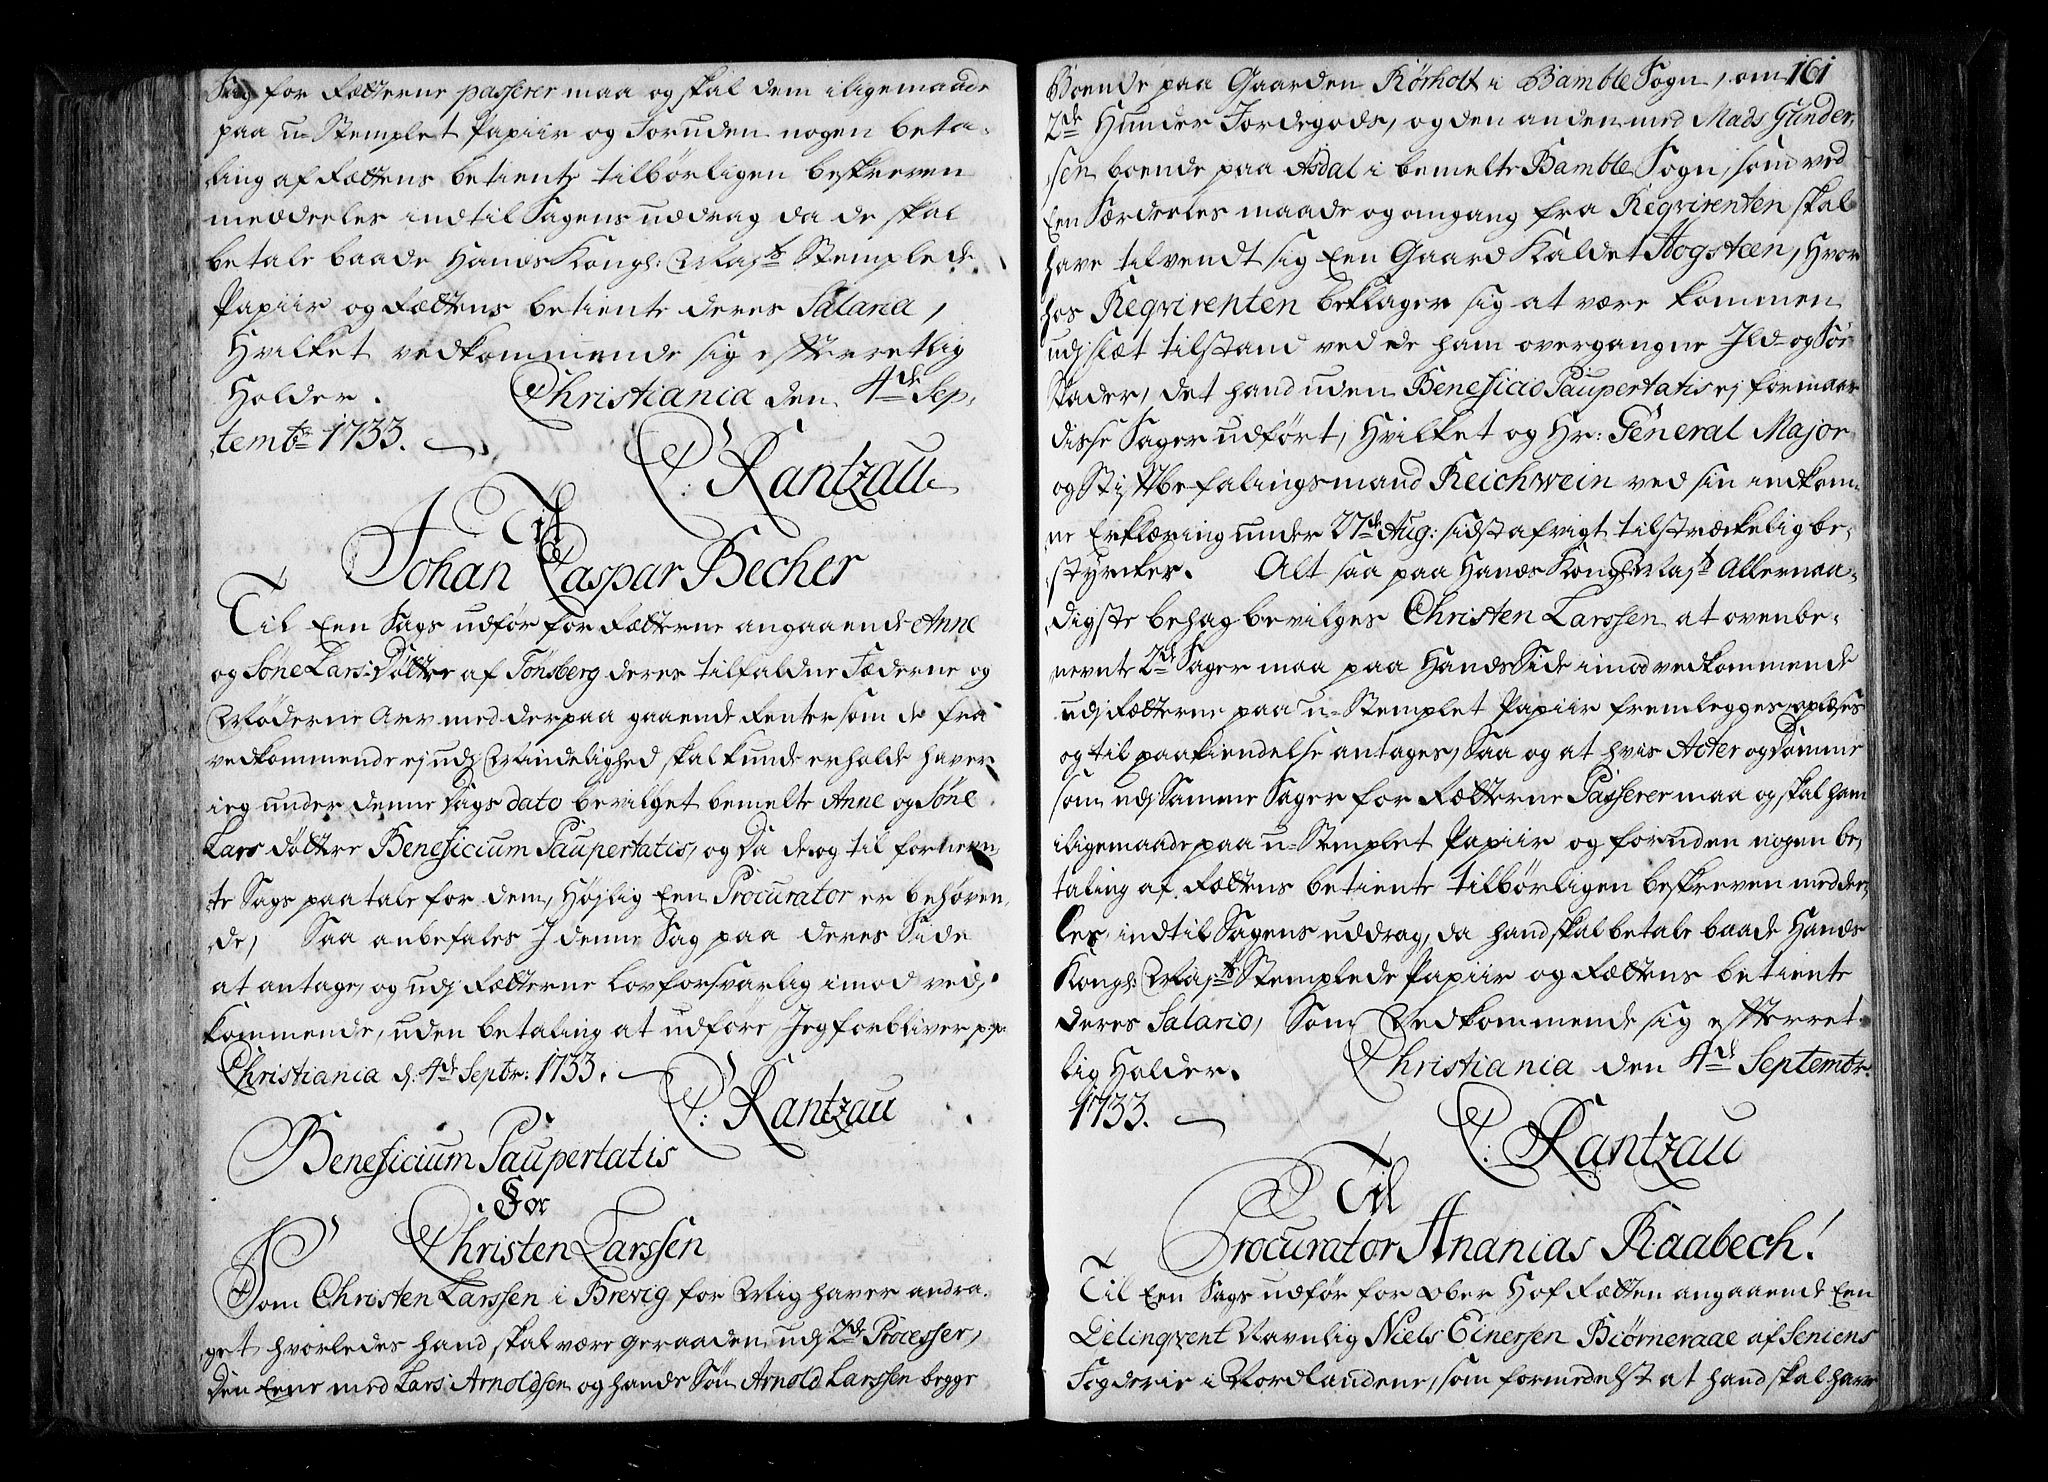 Sag for Rætterne passerer maa og skal dem iligemaade
paa u-Stemplet Papiir og foruden nogen beta-
ling af Rættens betiente tilbørligen beskreven
meddeeles indtil Sagens uddrag da de skal
betale baade Hands Kongl: Majts Stemplede
Papiir og Rættens betiente deres Salaria,
Hvilket vedkommende sig efterretlig
Holder. Christiania den 4de Sep-
tembr 1733.
C: Rantzau
Til
Johan Caspar Becher
Til Een Sags udfør for Rætterne angaaende Anne
og Søne Lars Døttre af Tønsberg deres tilfaldne Fæderne og
Møderne Arv med derpaa gaaende Renter som de fra
vedkommende ej udj Mindelighed skal kunde erholde haver
ieg under denne Dags dato bevilget bemelte Anne og Søne
Lars døttre Beneficium Paupertatis, og Da de og til fornevn-
te Sags paatale for dem, Højlig Een Procurator er behøven-
de, Saa anbefales J denne Sag paa deres Side
at antage, og udj Rætterne lovforsvarlig imod ved-
kommende, uden betaling at udføre, Jeg forbliver pp:
Christiania d: 4de Septbr: 1733.
C: Rantzau
Beneficium Paupertatis
For
Christen Larssen
Som Christen Larssen i Brevig for Mig haver andra-
get hvorledes hand skal være geraaden udj 2de Processer,
Den Eene med Lars Arnoldsen og hands Søn Arnold Larssen begge
161
Boende paa Gaarden Rørholt i Bamble Sogn, om
2de Hunder Jordegods, og den anden med Mads Gunder-
sen boende paa Asdal i bemelte Bamble Sogn, som ved
Een Særdeeles maade og omgang fra Reqvirenten skal
have tilvendt sig Een Gaard Kaldet Hogstæn, Hvor
hos Reqvirenten beklager sig at være kommen
udj slæt tilstand ved de ham overgangne Jld- og Søe
Skader, det hand uden Beneficio Paupertatis ej formaar
disse Sager udført, Hvilket og Hr: General Major
og Stiftbefalingsmand Reichwein ved sin indkom-
ne Erklæring under 27de Aug: sidst afvigt tilstrækkelig be-
styrker. Alt saa paa Hands Kongl: Majts Allernaa-
digste behag bevilges Christen Larssen at ovenbe-
nevnte 2de Sager maa paa Hands Side imod vedkommende
udj Rætterne paa u-Stemplet Papiir fremlegges, oplæses
og til paakiendelse antages, Saa og at hvis Acter og Domme
som udj Samme Sager for Rætterne Passerer maa og skal ham
iligemaade paa u-Stemplet Papiir og foruden nogen be-
taling af Rættens betiente tilbørligen beskreven meddee-
les, indtil Sagens uddrag, da hand skal betale baade Hands
Kongl: Majts Stemplede Papiir og Rættens betiente
deres Salario, Som Vedkommende sig efterret-
lig Holder. Christiania den 4de Septembr:
1733.
C: Rantzau
Til
Procurator Ananias Raabech!
Til Een Sags udfør for Ober Hof Rætten angaaende Een
Delinqvent Navnlig Niels Einersen Biørneraae af Seniens
Fogderie i Nordlandene, som formedelst at hand skal have